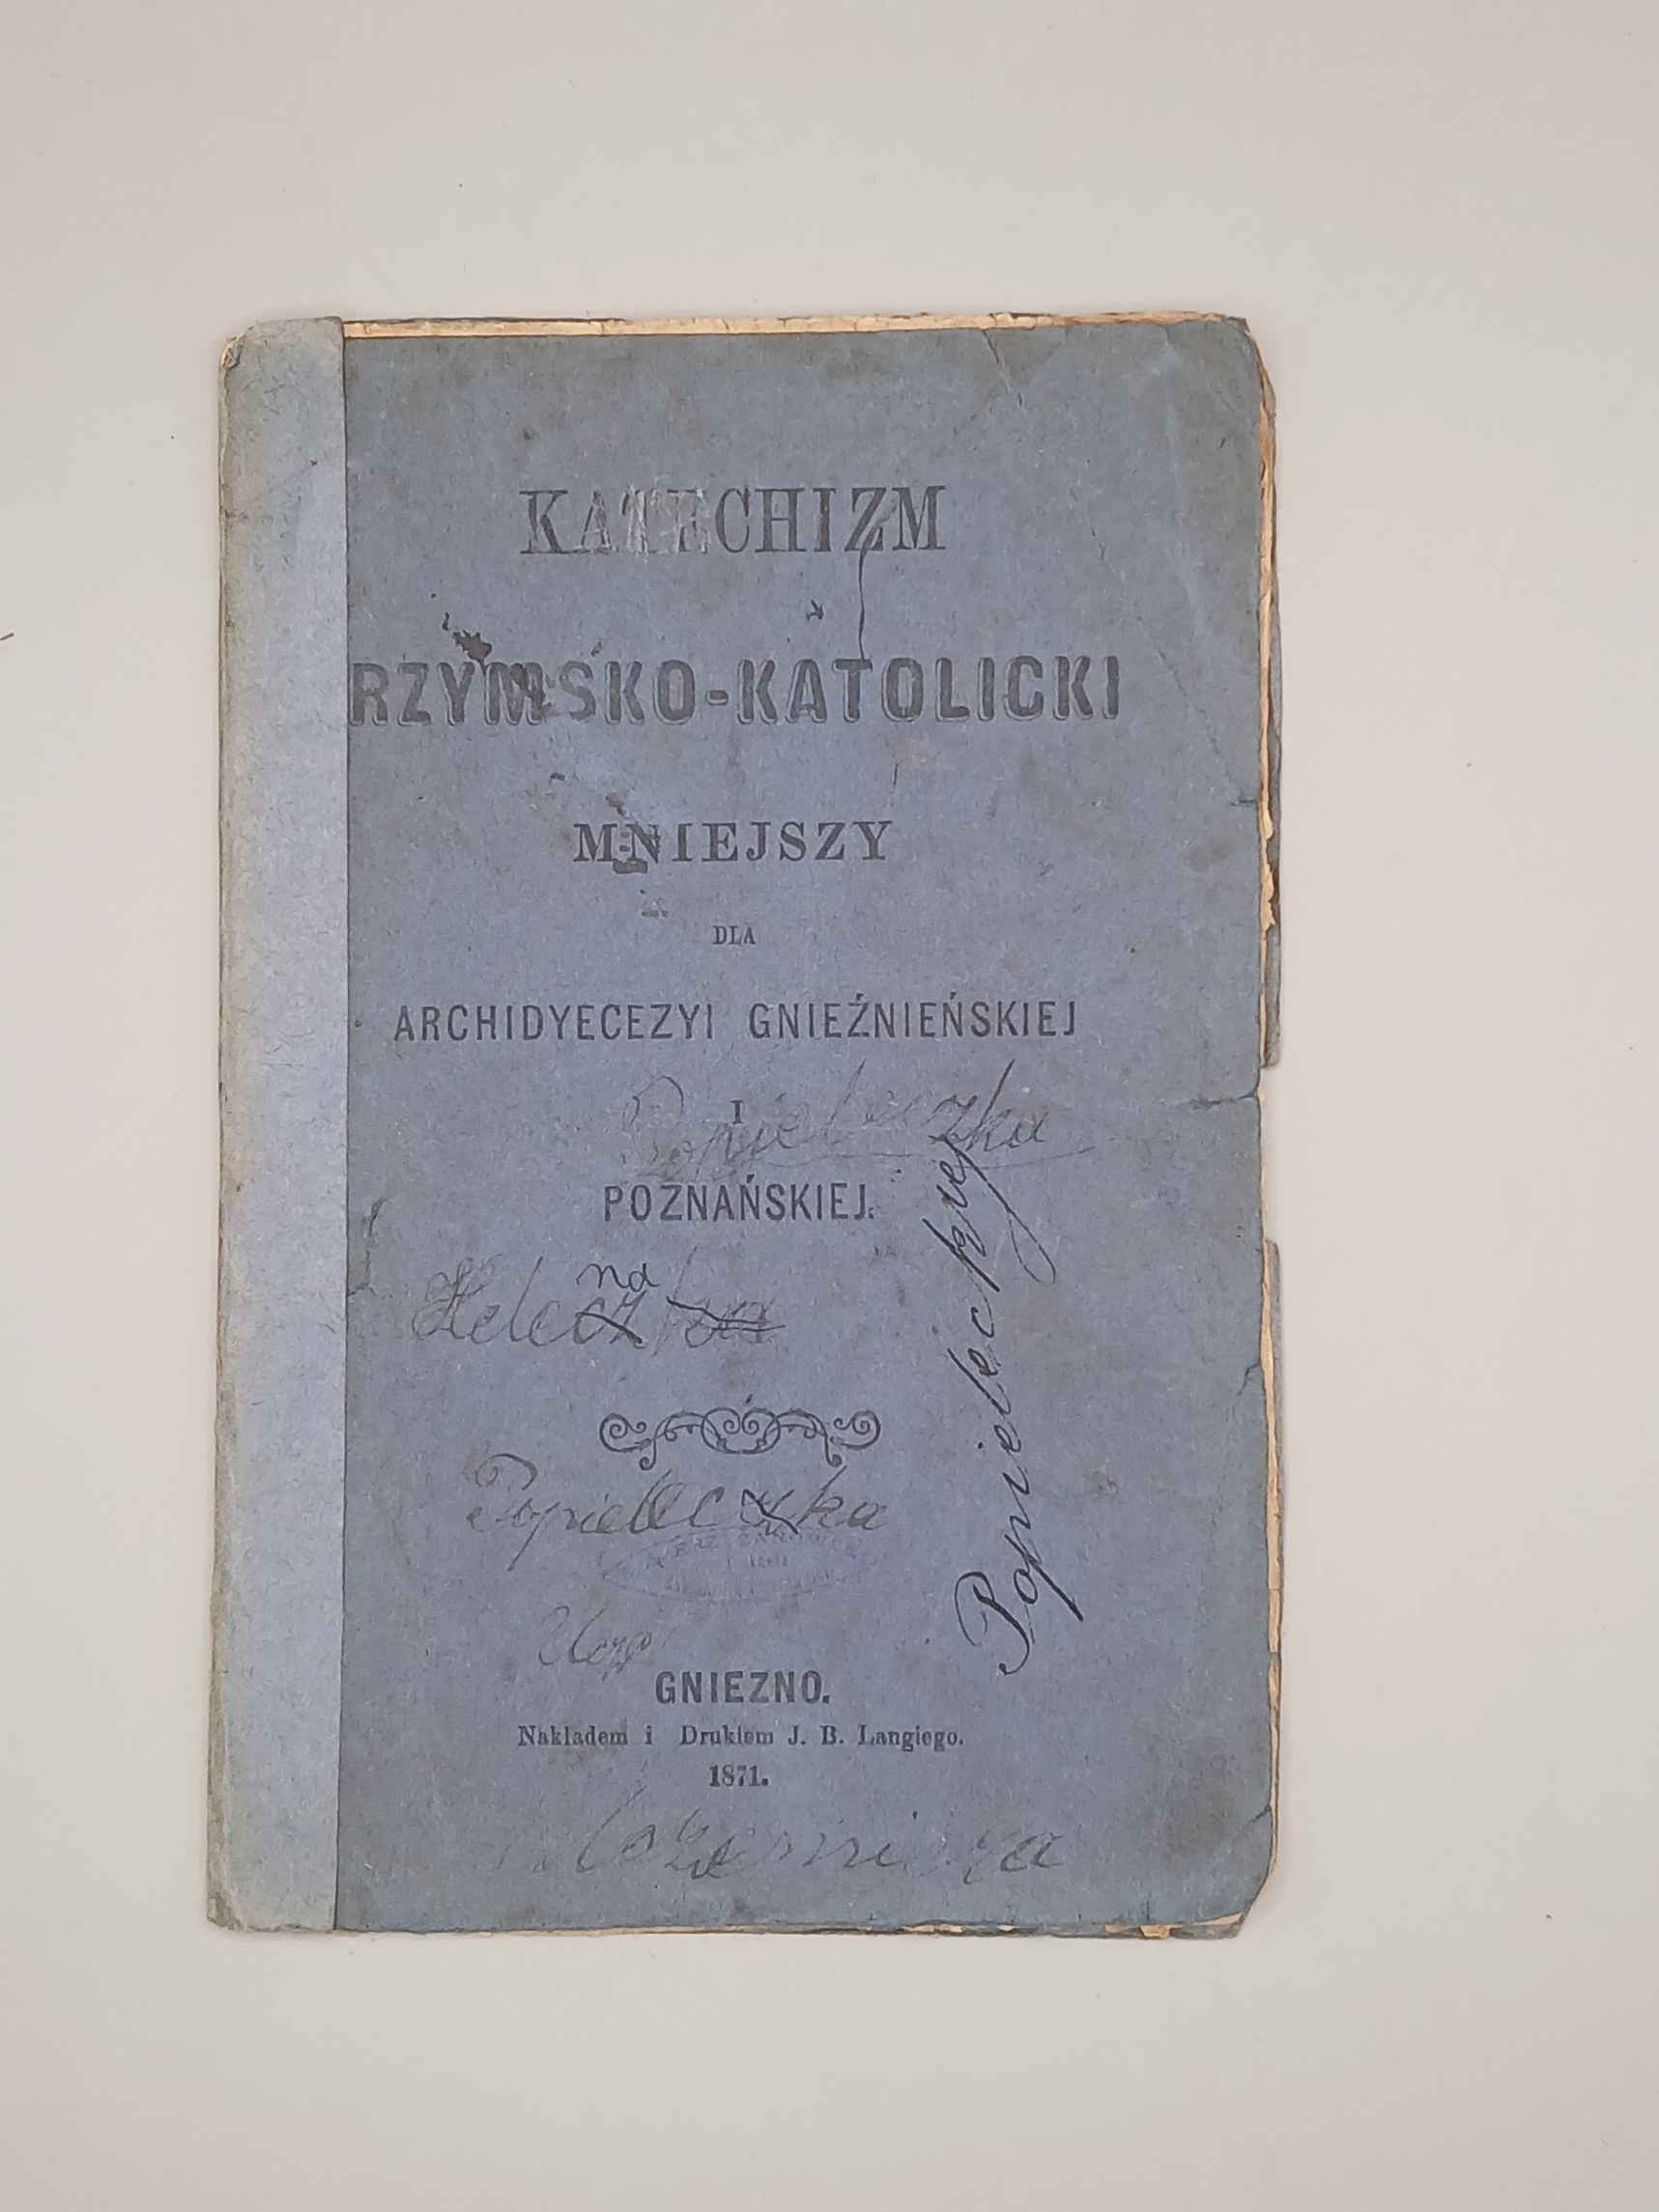 KATECHIZM
RZYMSKO-KATOLICKI
MNIEJSZY
DLA
ARCHIDYECEZYI GNIEŹNIEŃSKIEJ
I
Popieleczka
POZNAŃSKIEJ.
na
Popieleckiej
Popieleczka
GNIEZNO.
Nakładem i Drukiem J. B. Langiego.
1871.